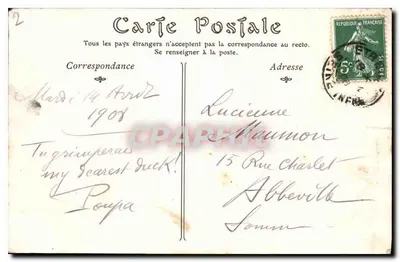 2
Carte Postale
Tous les pays étrangers n'acceptent pas la correspondance au recto.
Se renseigner à la poste.
Correspondance
Adresse
REPUBLIQUE FRANÇAISE
5
Mardi 14 Avril
1908
my dearest duck!
Poupa
Lucienne
Maumon
15 Rue Charlet
Abbeville
Somme